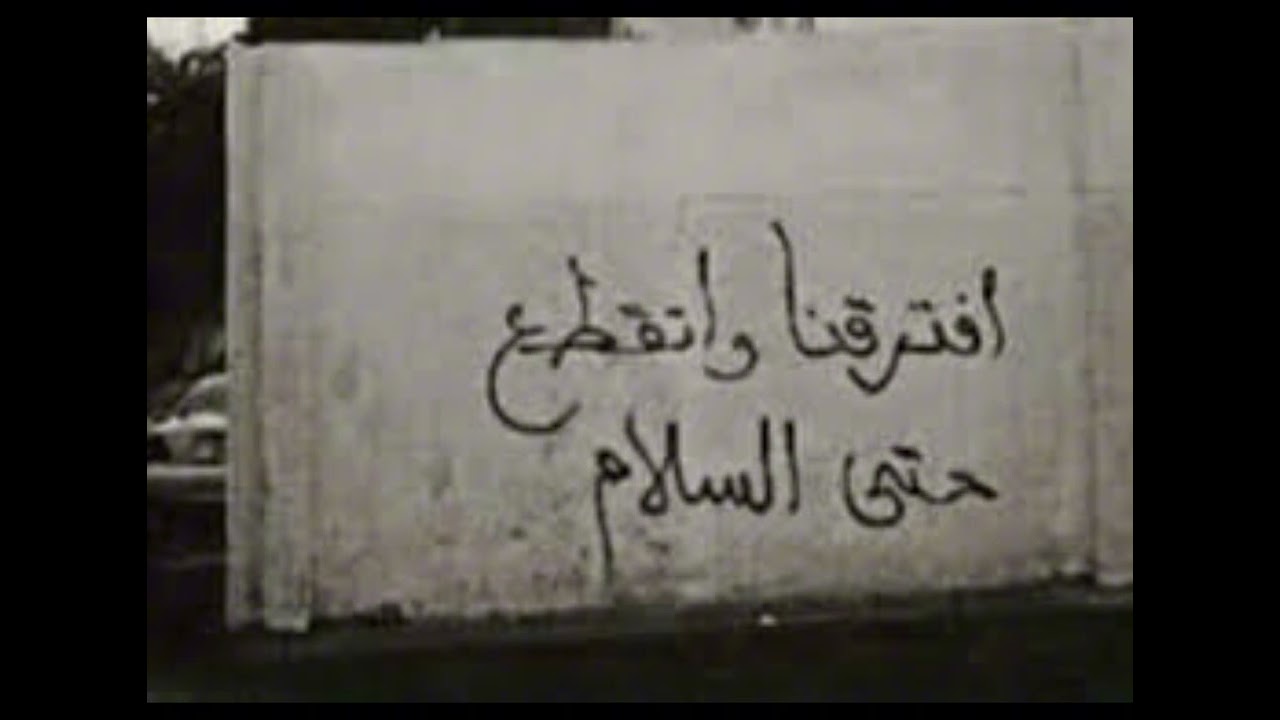 افترقنا واتقطع
حتى السلام